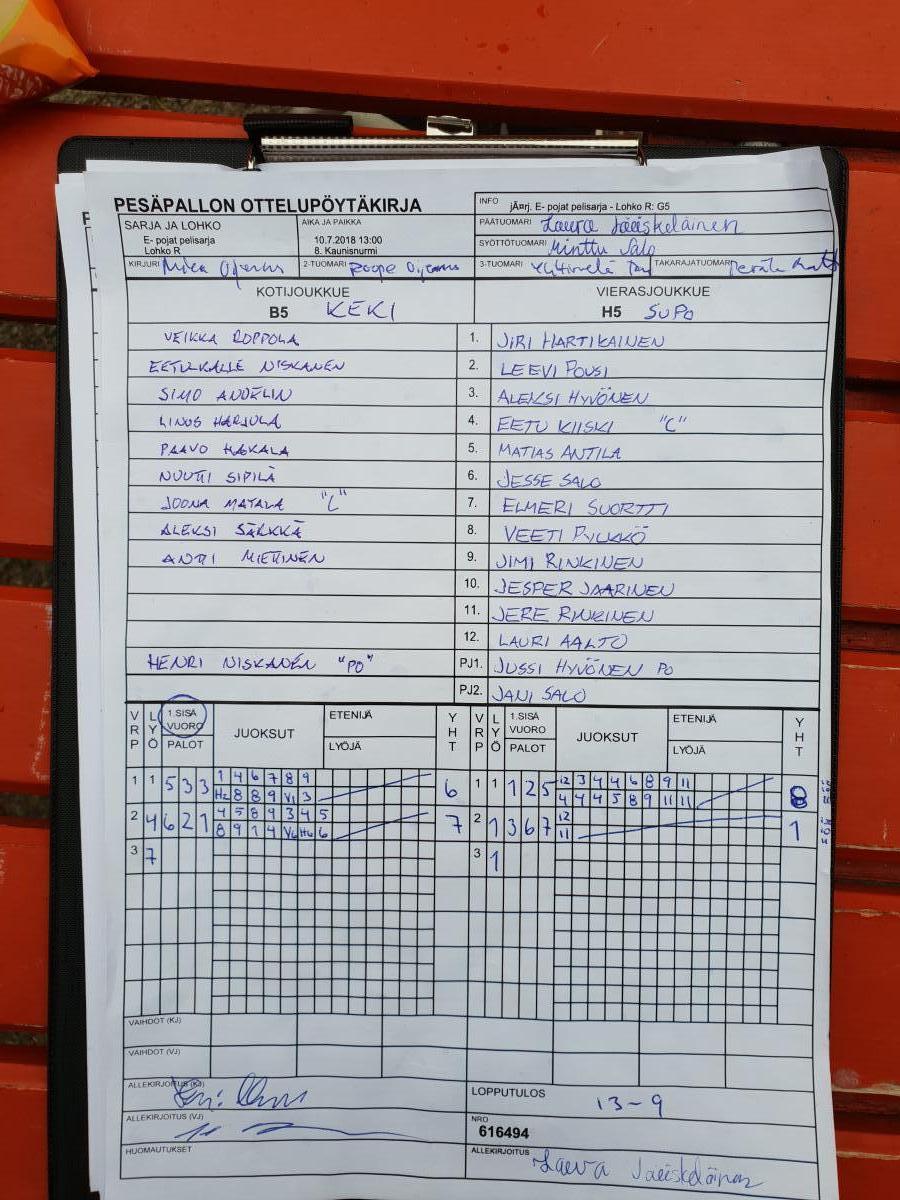 PESÄPALLON OTTELUPÖYTÄKIRJA
INFO jÄ¤rj. E- pojat pelisarja - Lohko R: G5
SARJA JA LOHKO
E- pojat pelisarja
Lohko R
AIKA JA PAIKKA
10.7.2018 13:00
8. Kaunisnurmi
PÄÄTUOMARI Laura Jääskeläinen
SYÖTTÖTUOMARI Minttu Salo
KIRJURI Mika
2-TUOMARI Roope
3-TUOMARI
TAKARAJATUOMARI
KOTIJOUKKUE
B5 KEKI
VIERASJOUKKUE
H5 SUPO
VEIKKA ROPPOLA 1. JIRI HARTIKAINEN
EETU-KALLE NISKANEN 2. LEEVI POUSI
SIMO ANDELIN 3. ALEKSI HYVÖNEN
LINUS HARJULA 4. EETU KIISKI "C"
PAAVO HAKALA 5. MATIAS ANTILA
NUUTTI SIPILÄ 6. JESSE SALO
JOONA MATALA "C" 7. ELMERI SUORTTI
ALEKSI SÄRKKÄ 8. VEETI PYLKKÖ
ANTTI MIETTINEN 9. JIMI RINKINEN
10. JESPER JAARINEN
11. JERE RINKINEN
12. LAURI AALTO
HENRI NISKANEN "PO" PJ1. JUSSI HYVÖNEN PO
PJ2. JANI SALO
VRP LYÖ 1.SISÄ VUORO PALOT JUOKSUT ETENIJÄ LYÖJÄ YHT VRP LYÖ 1.SISÄ VUORO PALOT JUOKSUT ETENIJÄ LYÖJÄ YHT
1 1 5 3 3 1 4 6 7 8 9 6 1 1 1 2 5 12 3 4 4 6 8 9 11 8
8 8 9 V1 3 4 4 4 5 8 9 11 11
2 4 6 2 1 4 5 8 9 3 4 5 7 2 1 3 6 7 12 1
8 9 1 4 V6 H6 6 11
3 7 3 1
VAIHDOT (KJ)
VAIHDOT (VJ)
ALLEKIRJOITUS (KJ)
LOPPUTULOS 13-9
ALLEKIRJOITUS (VJ)
NRO
616494
HUOMAUTUKSET
ALLEKIRJOITUS Laura Jääskeläinen